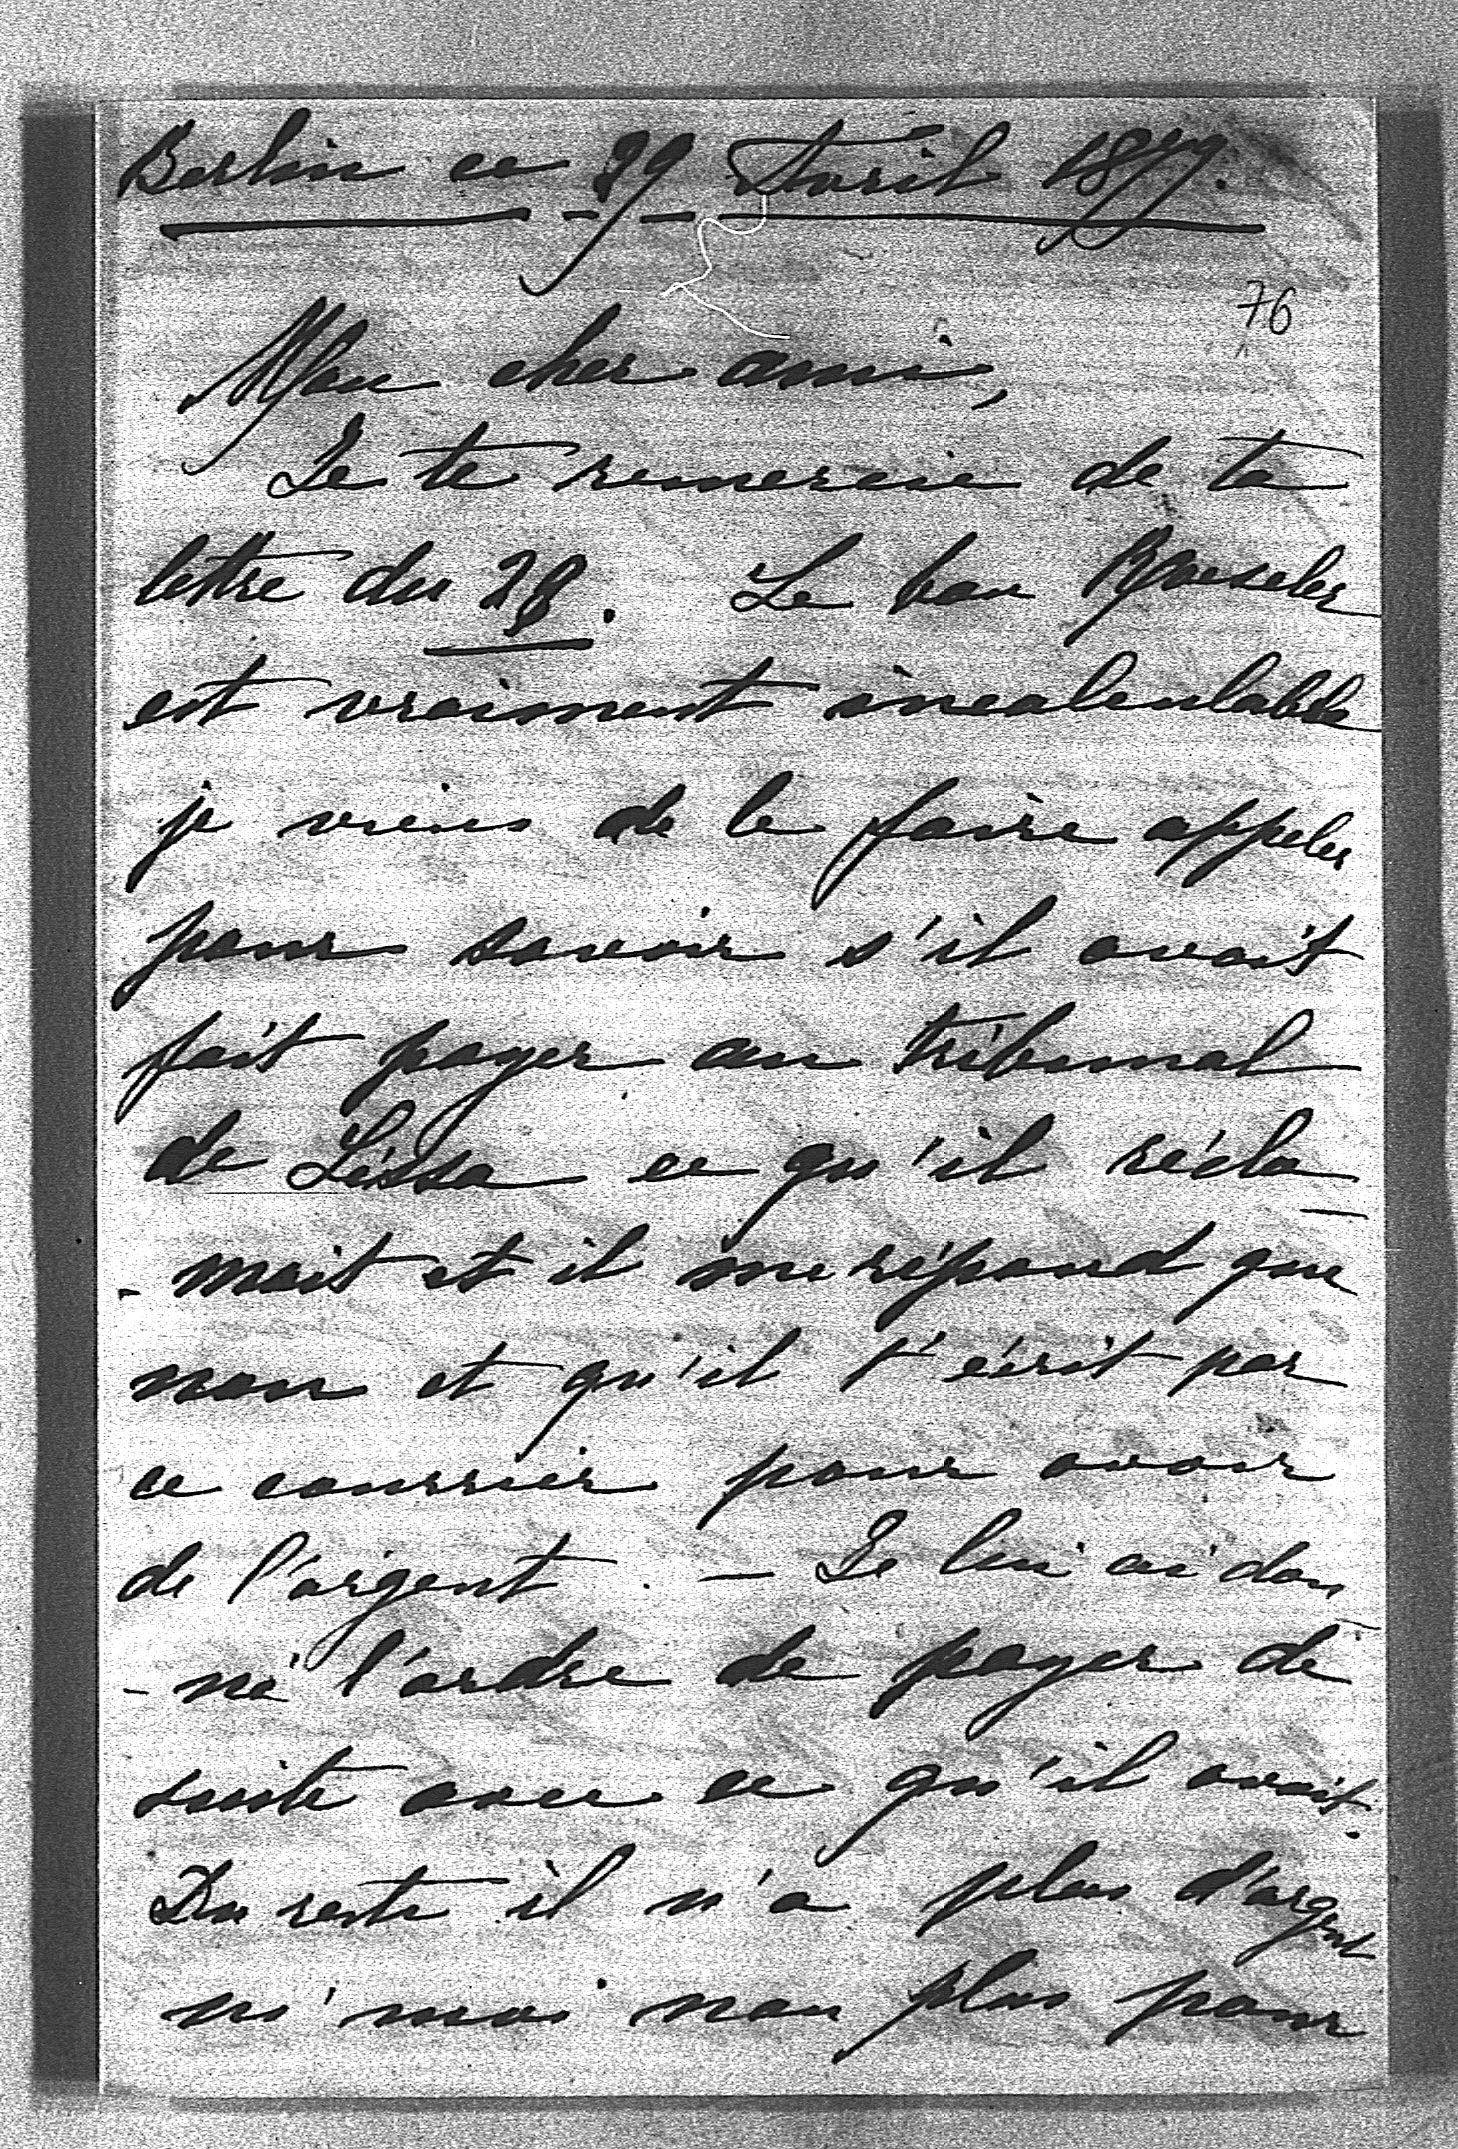 Berlin ce 29 Avril 1877.
76
Mon cher ami,
Je te remercie de ta
lettre du 28. Le bon
est vraiment incalculable
je viens de le faire appeler
pour savoir s'il avait
fait payer au tribunal
de Lissa ce qu'il récla
- mait et il me répond que
non et qu'il t'écrit par
ce courrier pour avoir
de l'argent. — Je lui ai don
- né l'ordre de payer de
suite avec ce qu'il avait.
Du reste il n'a plus d'argent
ni moi non plus pour